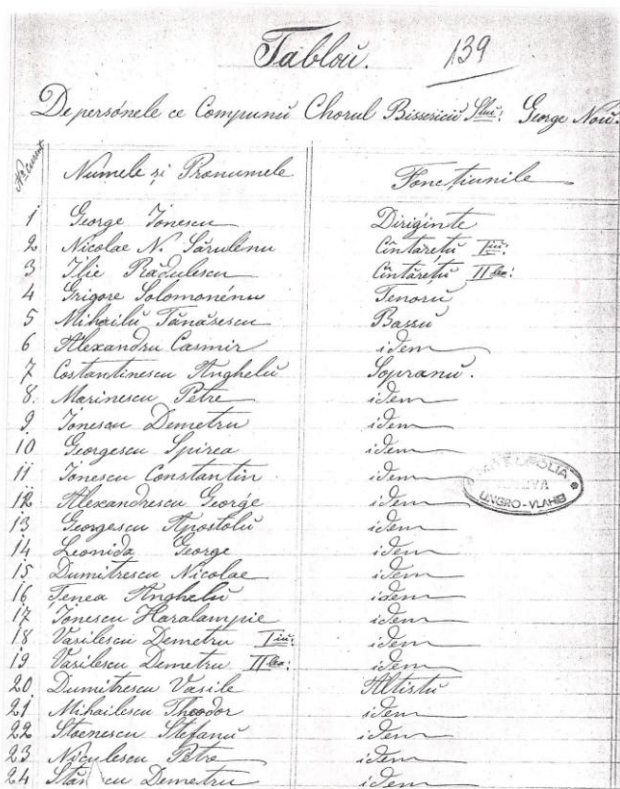 Tabloŭ. 139
De persónele ce Compunŭ Chorul Bisericiĭ Stuĭ: George Noŭ.
No curent Numele și Pronumele Foncțiunile
1 George Ionescu Diriginte
2 Nicolae N. Sărulenu Cîntărețŭ Iiŭ:
3 Ilie Rădulescu Cîntărețŭ II lea:
4 Grigore Solomonénu Tenorŭ
5 Mihailŭ Tănăsescu Bassŭ
6 Alexandru Casmir idem
7 Costantinescu Anghelŭ Sopranŭ.
8. Marinescu Petre idem
9 Ionescu Demetru idem
10 Georgescu Spirea idem
11 Ionescu Constantin idem
12 Alexandrescu George idem
13 Georgescu Apostolŭ idem
14 Leonida George idem
15 Dumitrescu Nicolae idem
16 Tenea Anghelŭ idem
17 Ionescu Haralampie idem
18 Vasilescu Demetru Iiŭ: idem
19 Vasilescu Demetru II lea: idem
20 Dumitrescu Vasile Altistŭ
21 Mihailescu Theodor idem
22 Stoenescu Stefanŭ idem
23 Niculescu Petre idem
24 Demetru idem
UNGRO-VLAHIEI